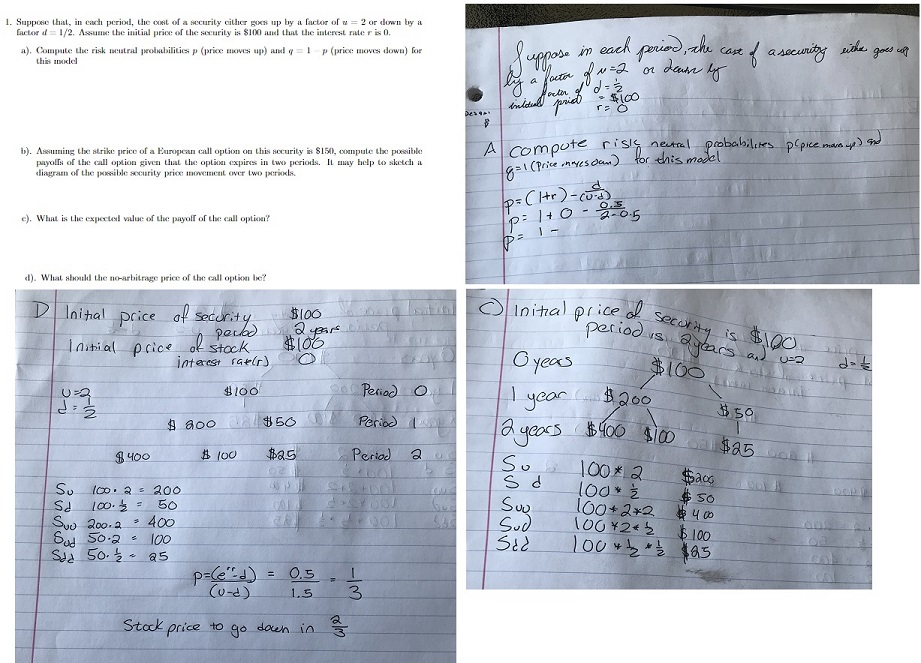 1. Suppose that, in each period, the cost of a security either goes up by a factor of u = 2 or down by a
factor d = 1/2. Assume the initial price of the security is $100 and that the interest rate r is 0.
a). Compute the risk neutral probabilities p (price moves up) and q = 1 − p (price moves down) for
this model
b). Assuming the strike price of a European call option on this security is $150, compute the possible
payoffs of the call option given that the option expires in two periods. It may help to sketch a
diagram of the possible security price movement over two periods.
c). What is the expected value of the payoff of the call option?
d). What should the no-arbitrage price of the call option be?
Suppose in each period, the cast of a security eithe goes up
by a factor of u=2 or down by
factor of d = 1/2
initial price = $100
r = 0
A compute risk neutral probabilities p(price moves up) and
q=1 (Price moves down) for this model
p=(1+r)-d/(u-d)
p= 1+0 - 0.5/2-0.5
p= 1 -
D Initial price of security $100
period 2 years
Initial price of stock $100
interest rate(r) 0
u=2
d = 1/2
$100 Period 0
$200 $50 Period 1
$400 $100 $25 Period 2
Su 100·2 = 200
Sd 100·1/2 = 50
Suu 200·2 = 400
Sud 50·2 = 100
Sdd 50·1/2 = 25
p=(e^rt-d)/(u-d) = 0.5/1.5 = 1/3
Stock price to go down in 2/3
C) Initial price of security is $100
period is 2 years and u=2 d=1/2
0 years $100
1 year $200 $50
2 years $400 $100 $25
Su 100*2 $200
Sd 100*1/2 $50
Suu 100*2*2 $400
Sud 100*2*1/2 $100
Sdd 100*1/2*1/2 $25